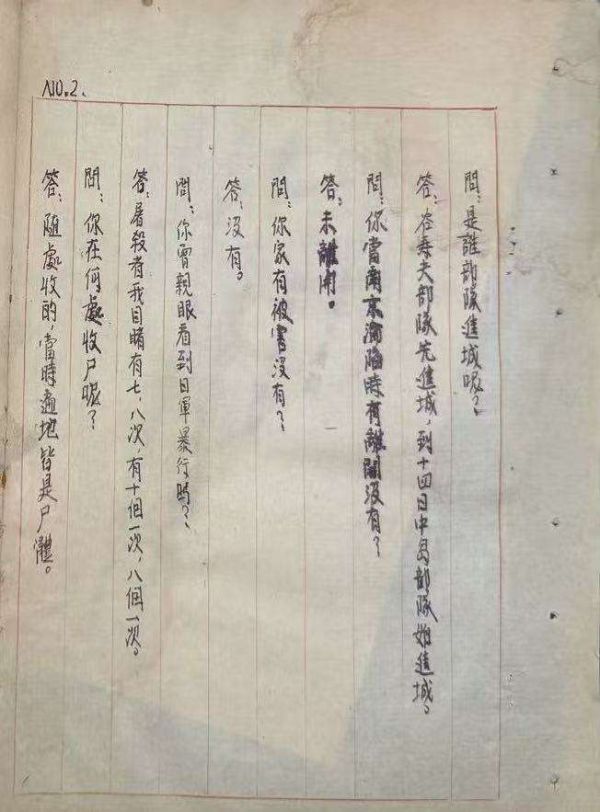 NO.2.
問：是誰部隊進城呢？
答：谷寿夫部隊先進城，到十四日中島部隊始進城。
問：你當南京淪陷時有離開没有？
答：未離開。
問：你家有被害没有？
答：没有。
問：你曾親眼看到日軍暴行嗎？
答：屠殺者我目睹有七，八次，有十個一次，八個一次。
問：你在何處收尸呢？
答：隨處收的，當時遍地皆是尸體。